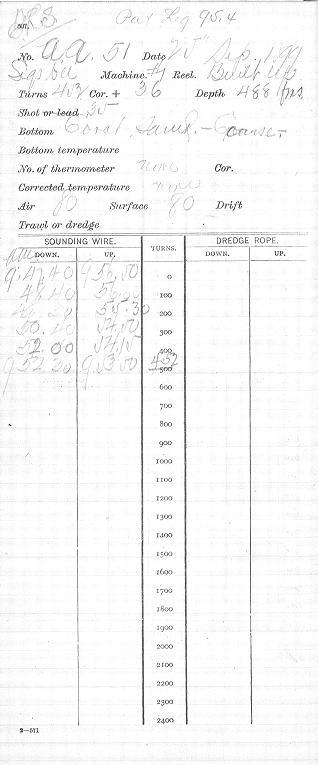 Pat Log 95.4
No. a.a. 51 Date 25" Sep. 1899
Sigsbee Machine. #1 Reel. Built up
Turns 453 Cor. + 36 Depth 488 fms.
Shot or lead 35
Bottom Coral Sand, - Coarse-
Bottom temperature
No. of thermometer none Cor.
Corrected temperature none
Air 80 Surface 80 Drift
Trawl or dredge
SOUNDING WIRE. TURNS. DREDGE ROPE.
DOWN. UP. DOWN. UP.
9.47.40 9.56.50 0
48.40 56.00 100
49.20 55.30 200
50.20 54.50 300
52.00 54.15 400
9 52 20 9.53.50 453 500
600
700
800
900
1000
1100
1200
1300
1400
1500
1600
1700
1800
1900
2000
2100
2200
2300
2400
2—571